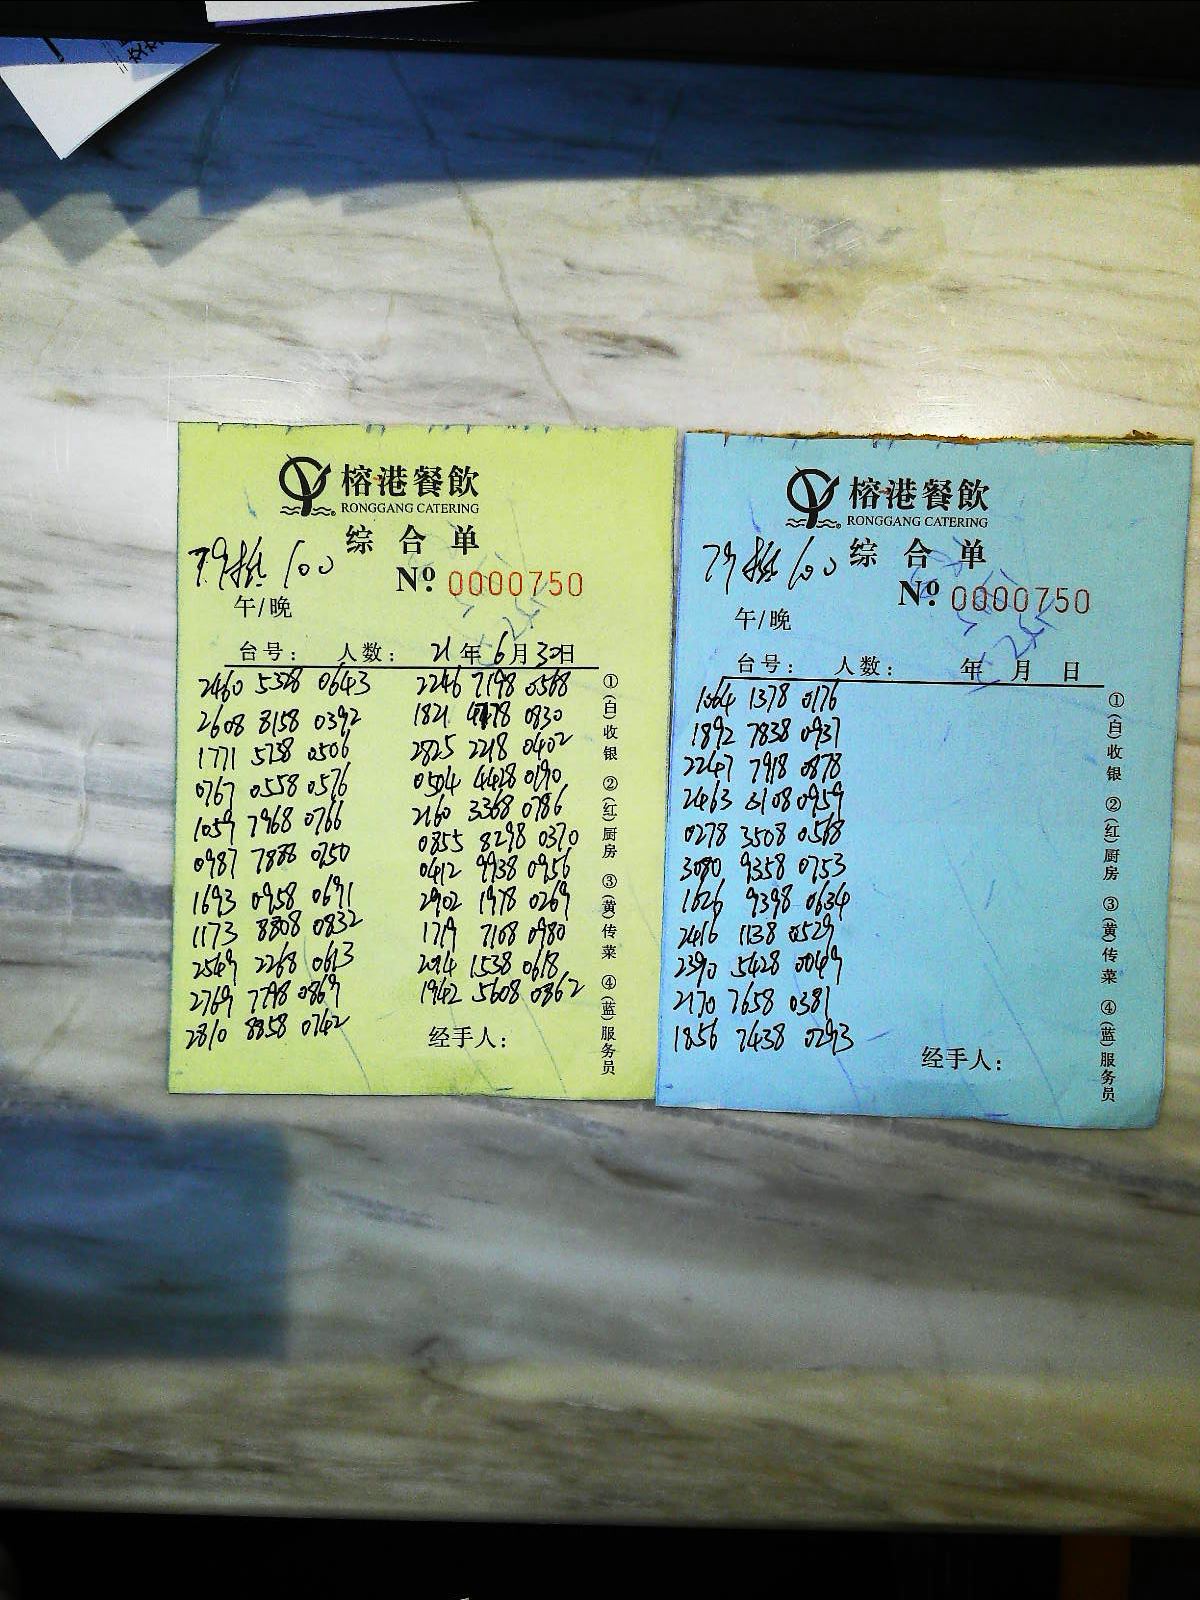 榕港餐飲
RONGGANG CATERING
综合单
100
No. 0000750
午/晚
台号: 人数: 21年6月30日
2460 5328 0643
2608 8158 0392
1771 5738 0506
0767 0558 0576
1059 7968 0766
0987 7888 0750
1693 0958 0691
1173 8808 0832
2549 2268 0613
2769 7798 0869
2810 8858 0742
2246 7198 0568
1821 4778 0830
2825 2218 0402
0504 4428 0190
2160 3368 0786
0855 8298 0370
0412 9938 0956
2902 1978 0269
1719 7108 0980
2014 1538 0618
1942 5608 0862
经手人:
①(白)收银 ②(红)厨房 ③(黄)传菜 ④(蓝)服务员
榕港餐飲
RONGGANG CATERING
综合单
100
No. 0000750
午/晚
台号: 人数: 年 月 日
1064 1378 0176
1892 7838 0937
2247 7918 0878
2463 3108 0959
0278 3508 0568
3080 9358 0753
1626 9398 0634
2416 1138 0529
2390 5428 0049
2170 7658 0381
1856 7438 0293
经手人:
①(白)收银 ②(红)厨房 ③(黄)传菜 ④(蓝)服务员